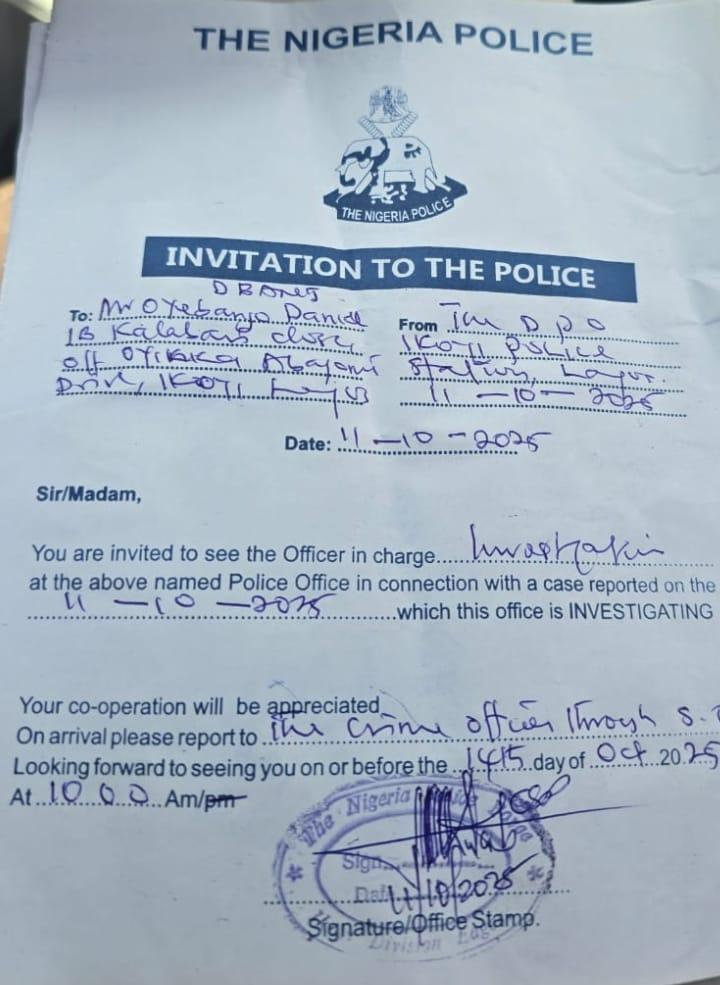 THE NIGERIA POLICE
THE NIGERIA POLICE
INVITATION TO THE POLICE
DBANJ
To: Mr Oyebanjo Daniel
1B close,
off
Drive, IKOYI Lagos
From The D P O
IKOYI Police
Station, Lagos.
11 - 10 - 2025
Date: 11 - 10 - 2025
Sir/Madam,
You are invited to see the Officer in charge....
at the above named Police Office in connection with a case reported on the
11 - 10 - 2025 which this office is INVESTIGATING
Your co-operation will be appreciated
On arrival please report to the crime officer through S.
Looking forward to seeing you on or before the day of Oct 2025
At 10 0 0 Am/pm
The Nigeria
Sign
Date 11/10/2025
Signature/Office Stamp.
Division